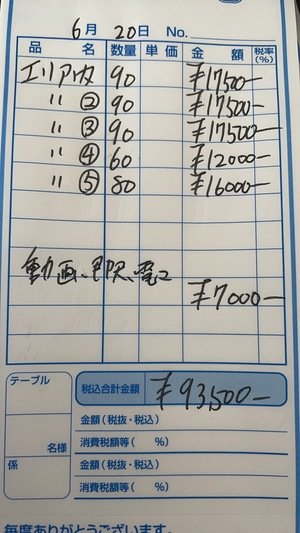 6月 20日 No.
品 名 数量 単価 金 額 税率(%)
エリア 90 ¥17500-
〃 ② 90 ¥17500-
〃 ③ 90 ¥17500-
〃 ④ 60 ¥12000-
〃 ⑤ 80 ¥16000-
動画、
¥7000-
テーブル
税込合計金額 ¥93,500-
金額(税抜・税込)
名様 消費税額等( %)
係 金額(税抜・税込)
消費税額等( %)
毎度ありがとうございます。